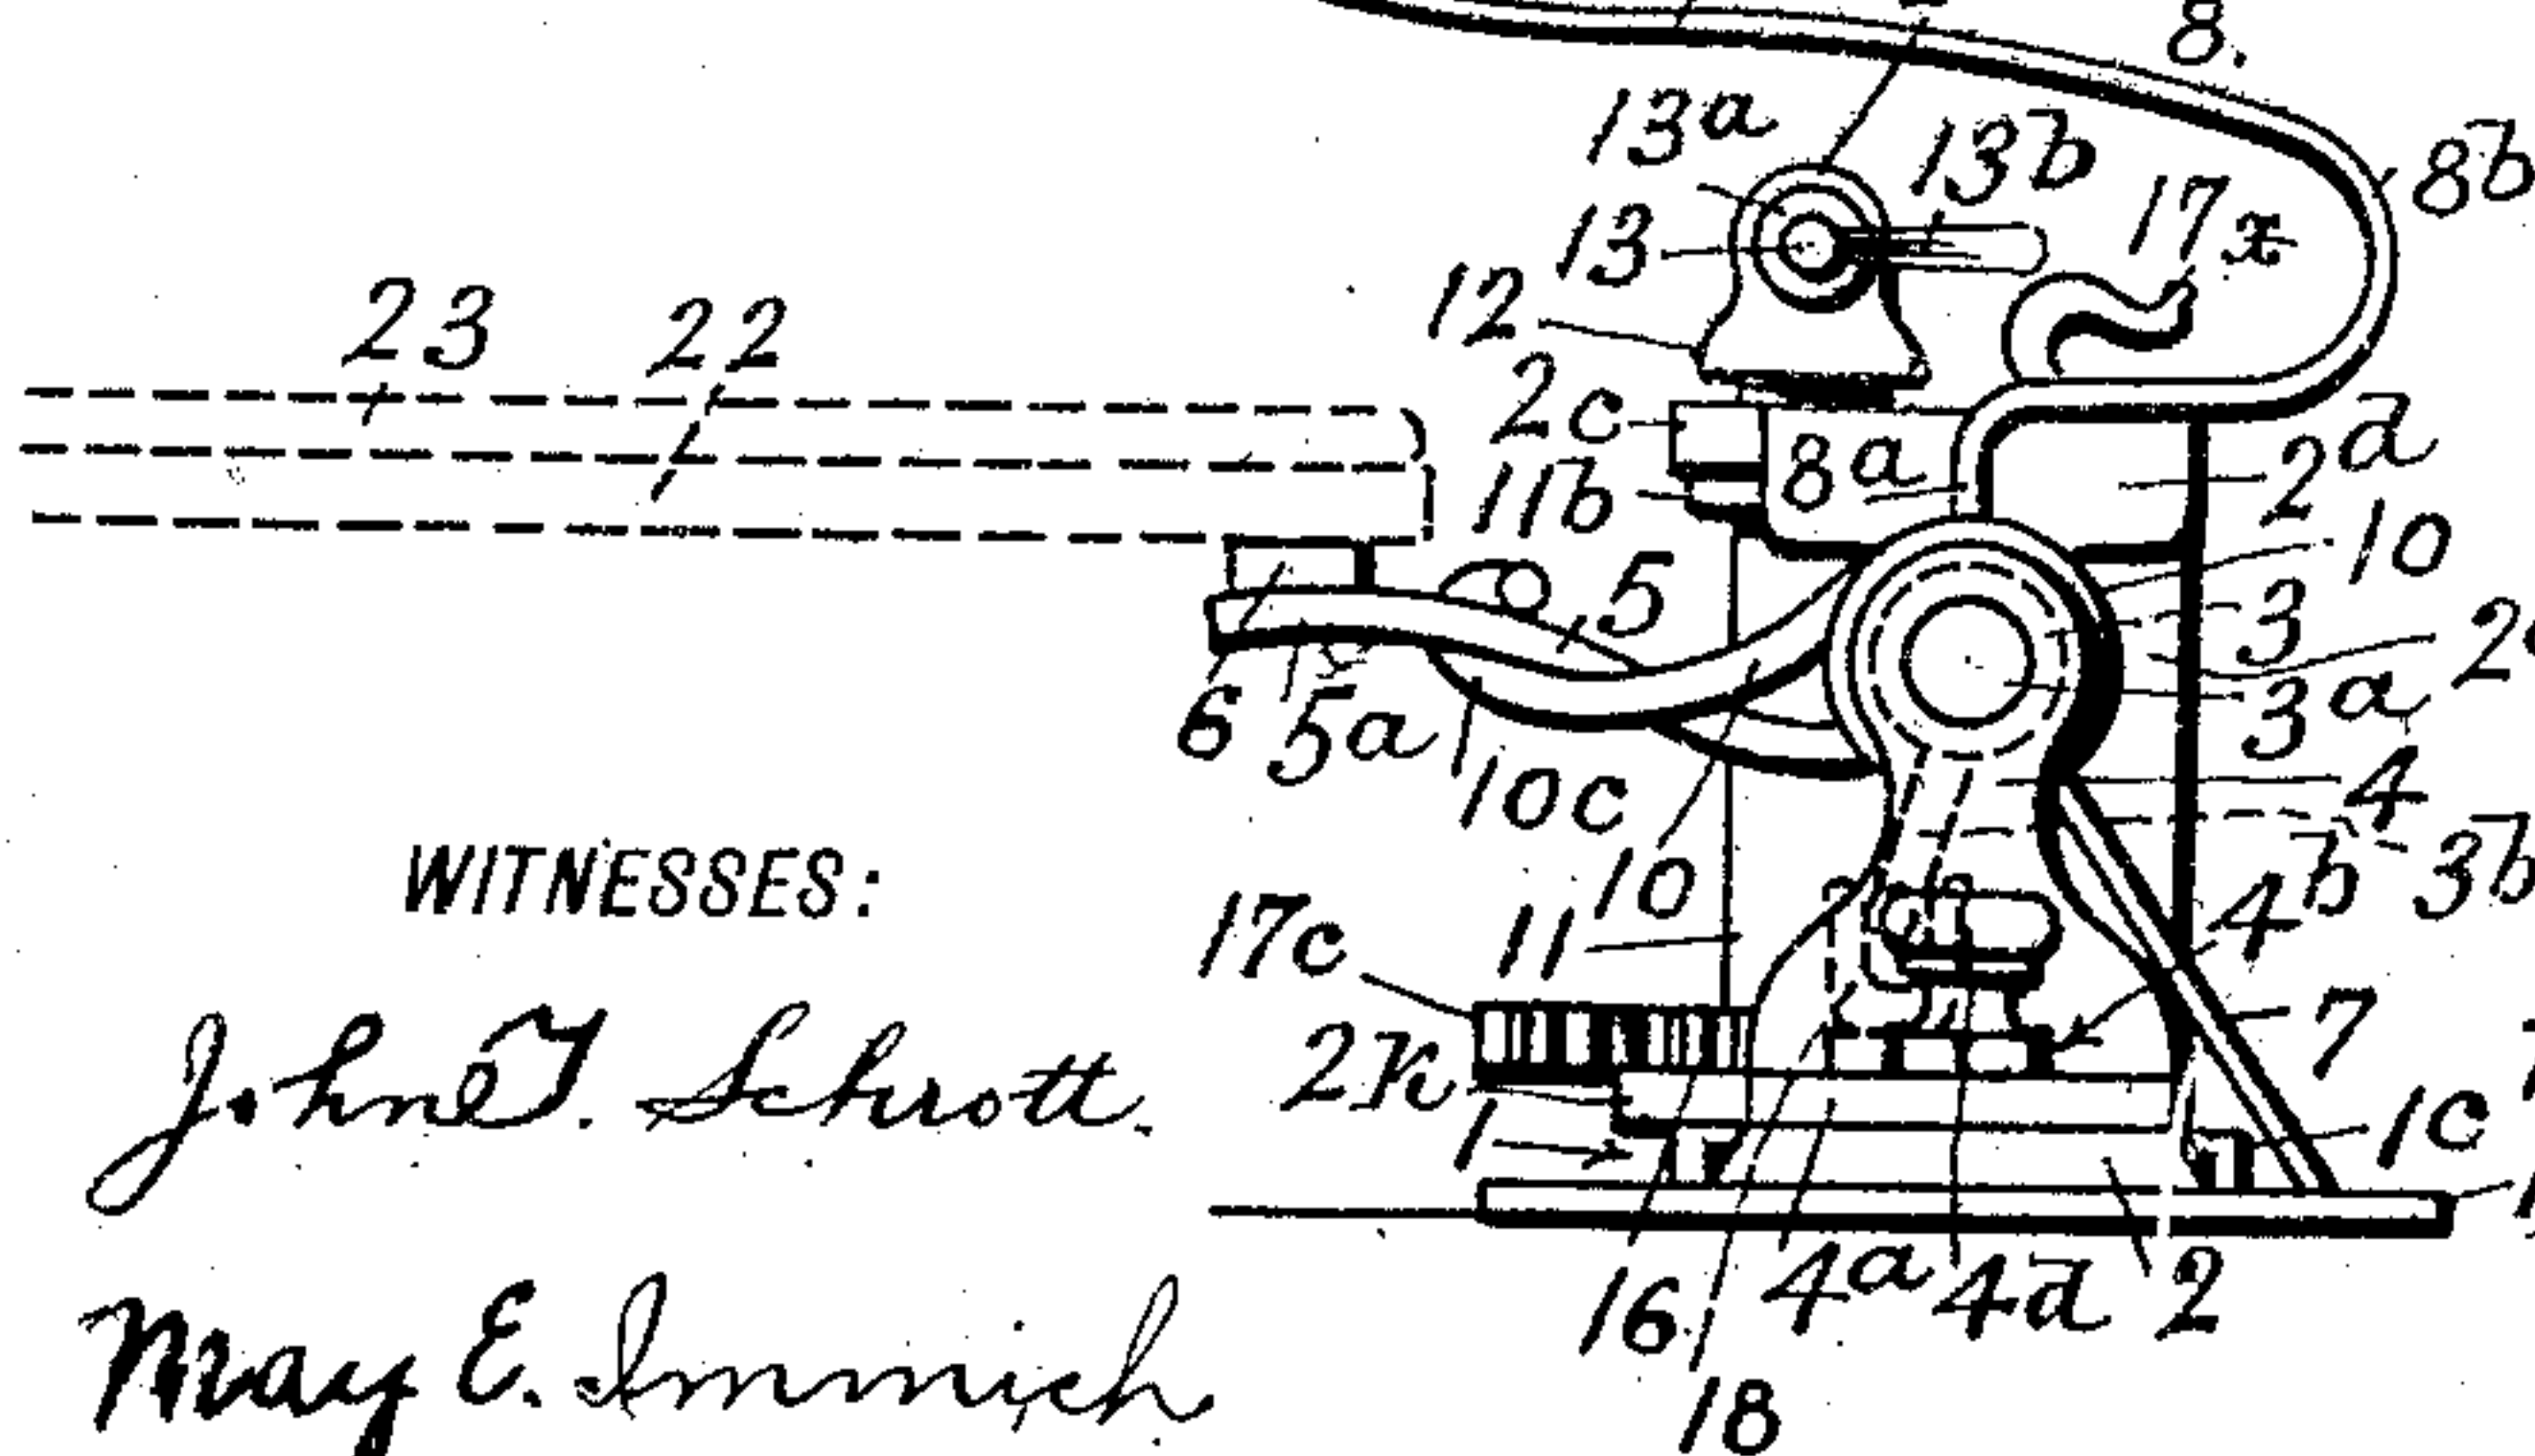 8.
13a
13b
8b
13
17x
12
23
22
2c
8a
2d
11b
10
5
3
6
5a
3a
10c
4
10
4b
3b
WITNESSES:
17c
11
7
John T. Schrott.
2k
1
1c
4a
4d
2
16
Mary E. Immich
18